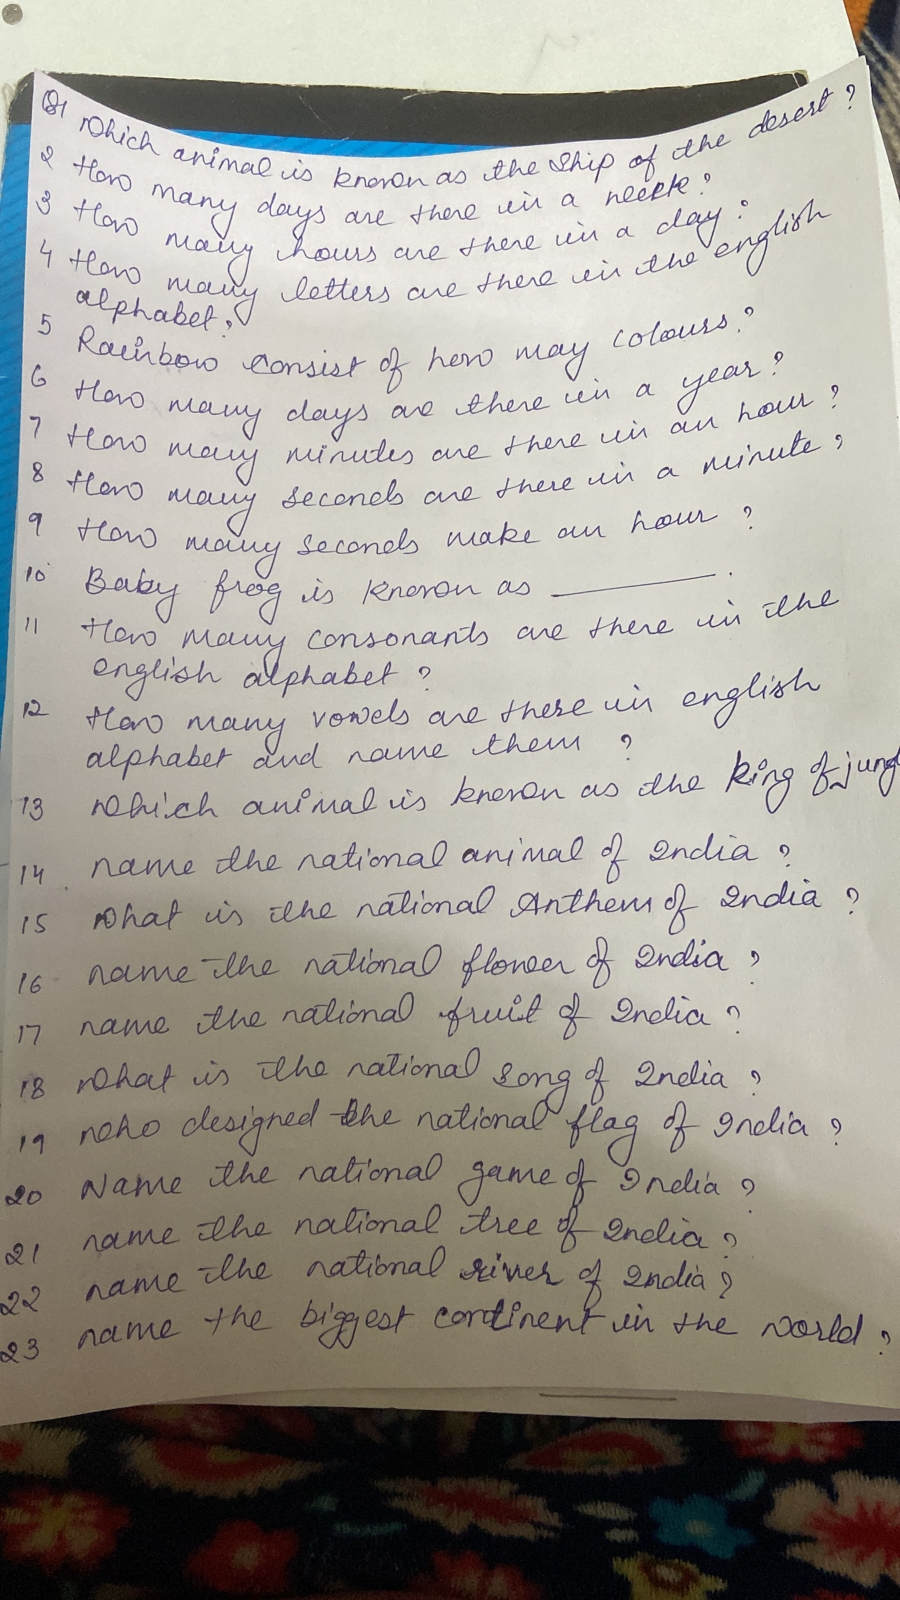 Q1 Which animal is known as the Ship of the desert ?
2 How many days are there in a week ?
3 How many hours are there in a day ?
4 How many letters are there in the english
alphabet ?
5 Rainbow consist of how may colours ?
6 How many days are there in a year ?
7 How many minutes are there in an hour ?
8 How many seconds are there in a minute ?
9 How many seconds make an hour ?
10 Baby frog is known as ________ .
11 How many consonants are there in the
english alphabet ?
12 How many vowels are there in english
alphabet and name them ?
13 Which animal is known as the king of jungl
14 name the national animal of India ?
15 What is the national Anthem of India ?
16 name the national flower of India ?
17 name the national fruit of India ?
18 What is the national song of India ?
19 who designed the national flag of India ?
20 Name the national game of India ?
21 name the national tree of India ?
22 name the national river of India ?
23 name the biggest continent in the world ?